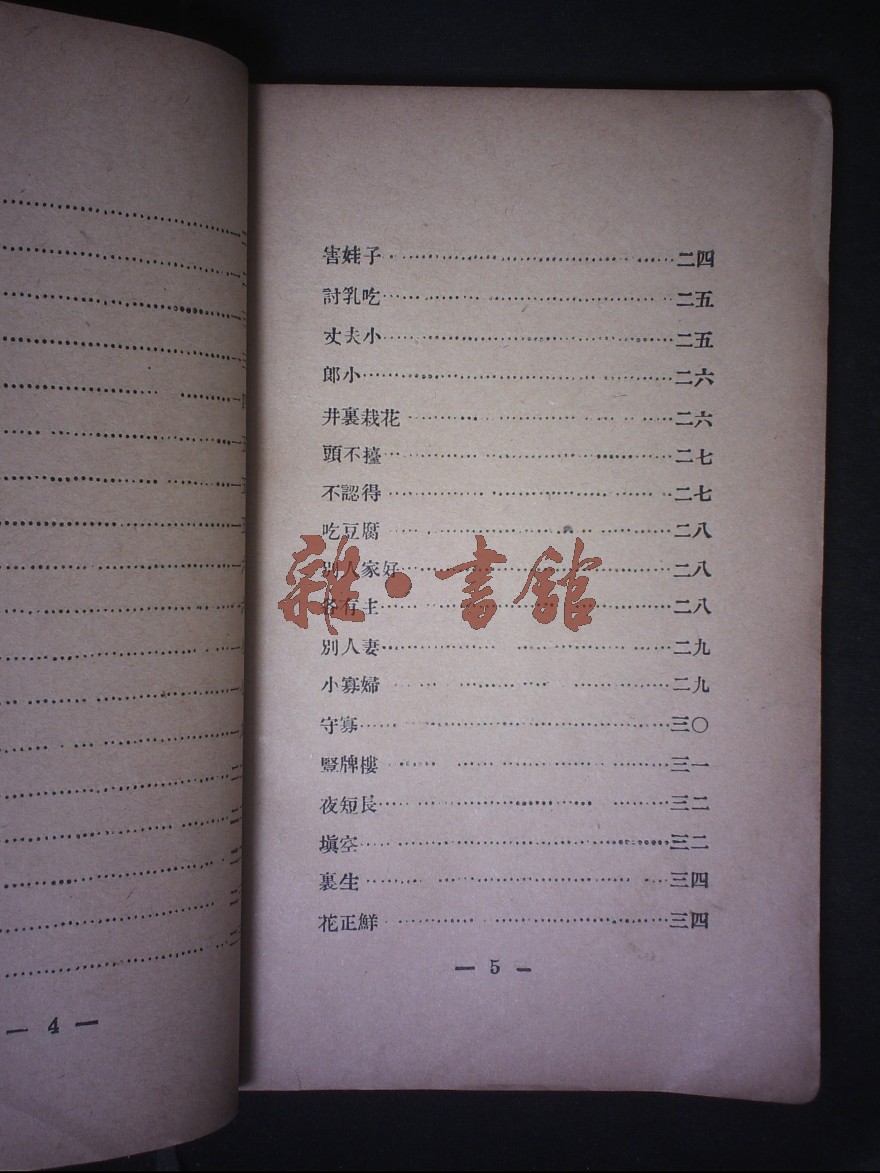 害娃子……二四
討乳吃……二五
丈夫小……二五
郎小……二六
井裏栽花……二六
頭不擡……二七
不認得……二七
吃豆腐……二八
別人家好……二八
各有主……二八
別人妻……二九
小寡婦……二九
守寡……三〇
豎牌樓……三一
夜短長……三二
塡空……三二
裏生……三四
花正鮮……三四
— 5 —
— 4 —
雜·書館